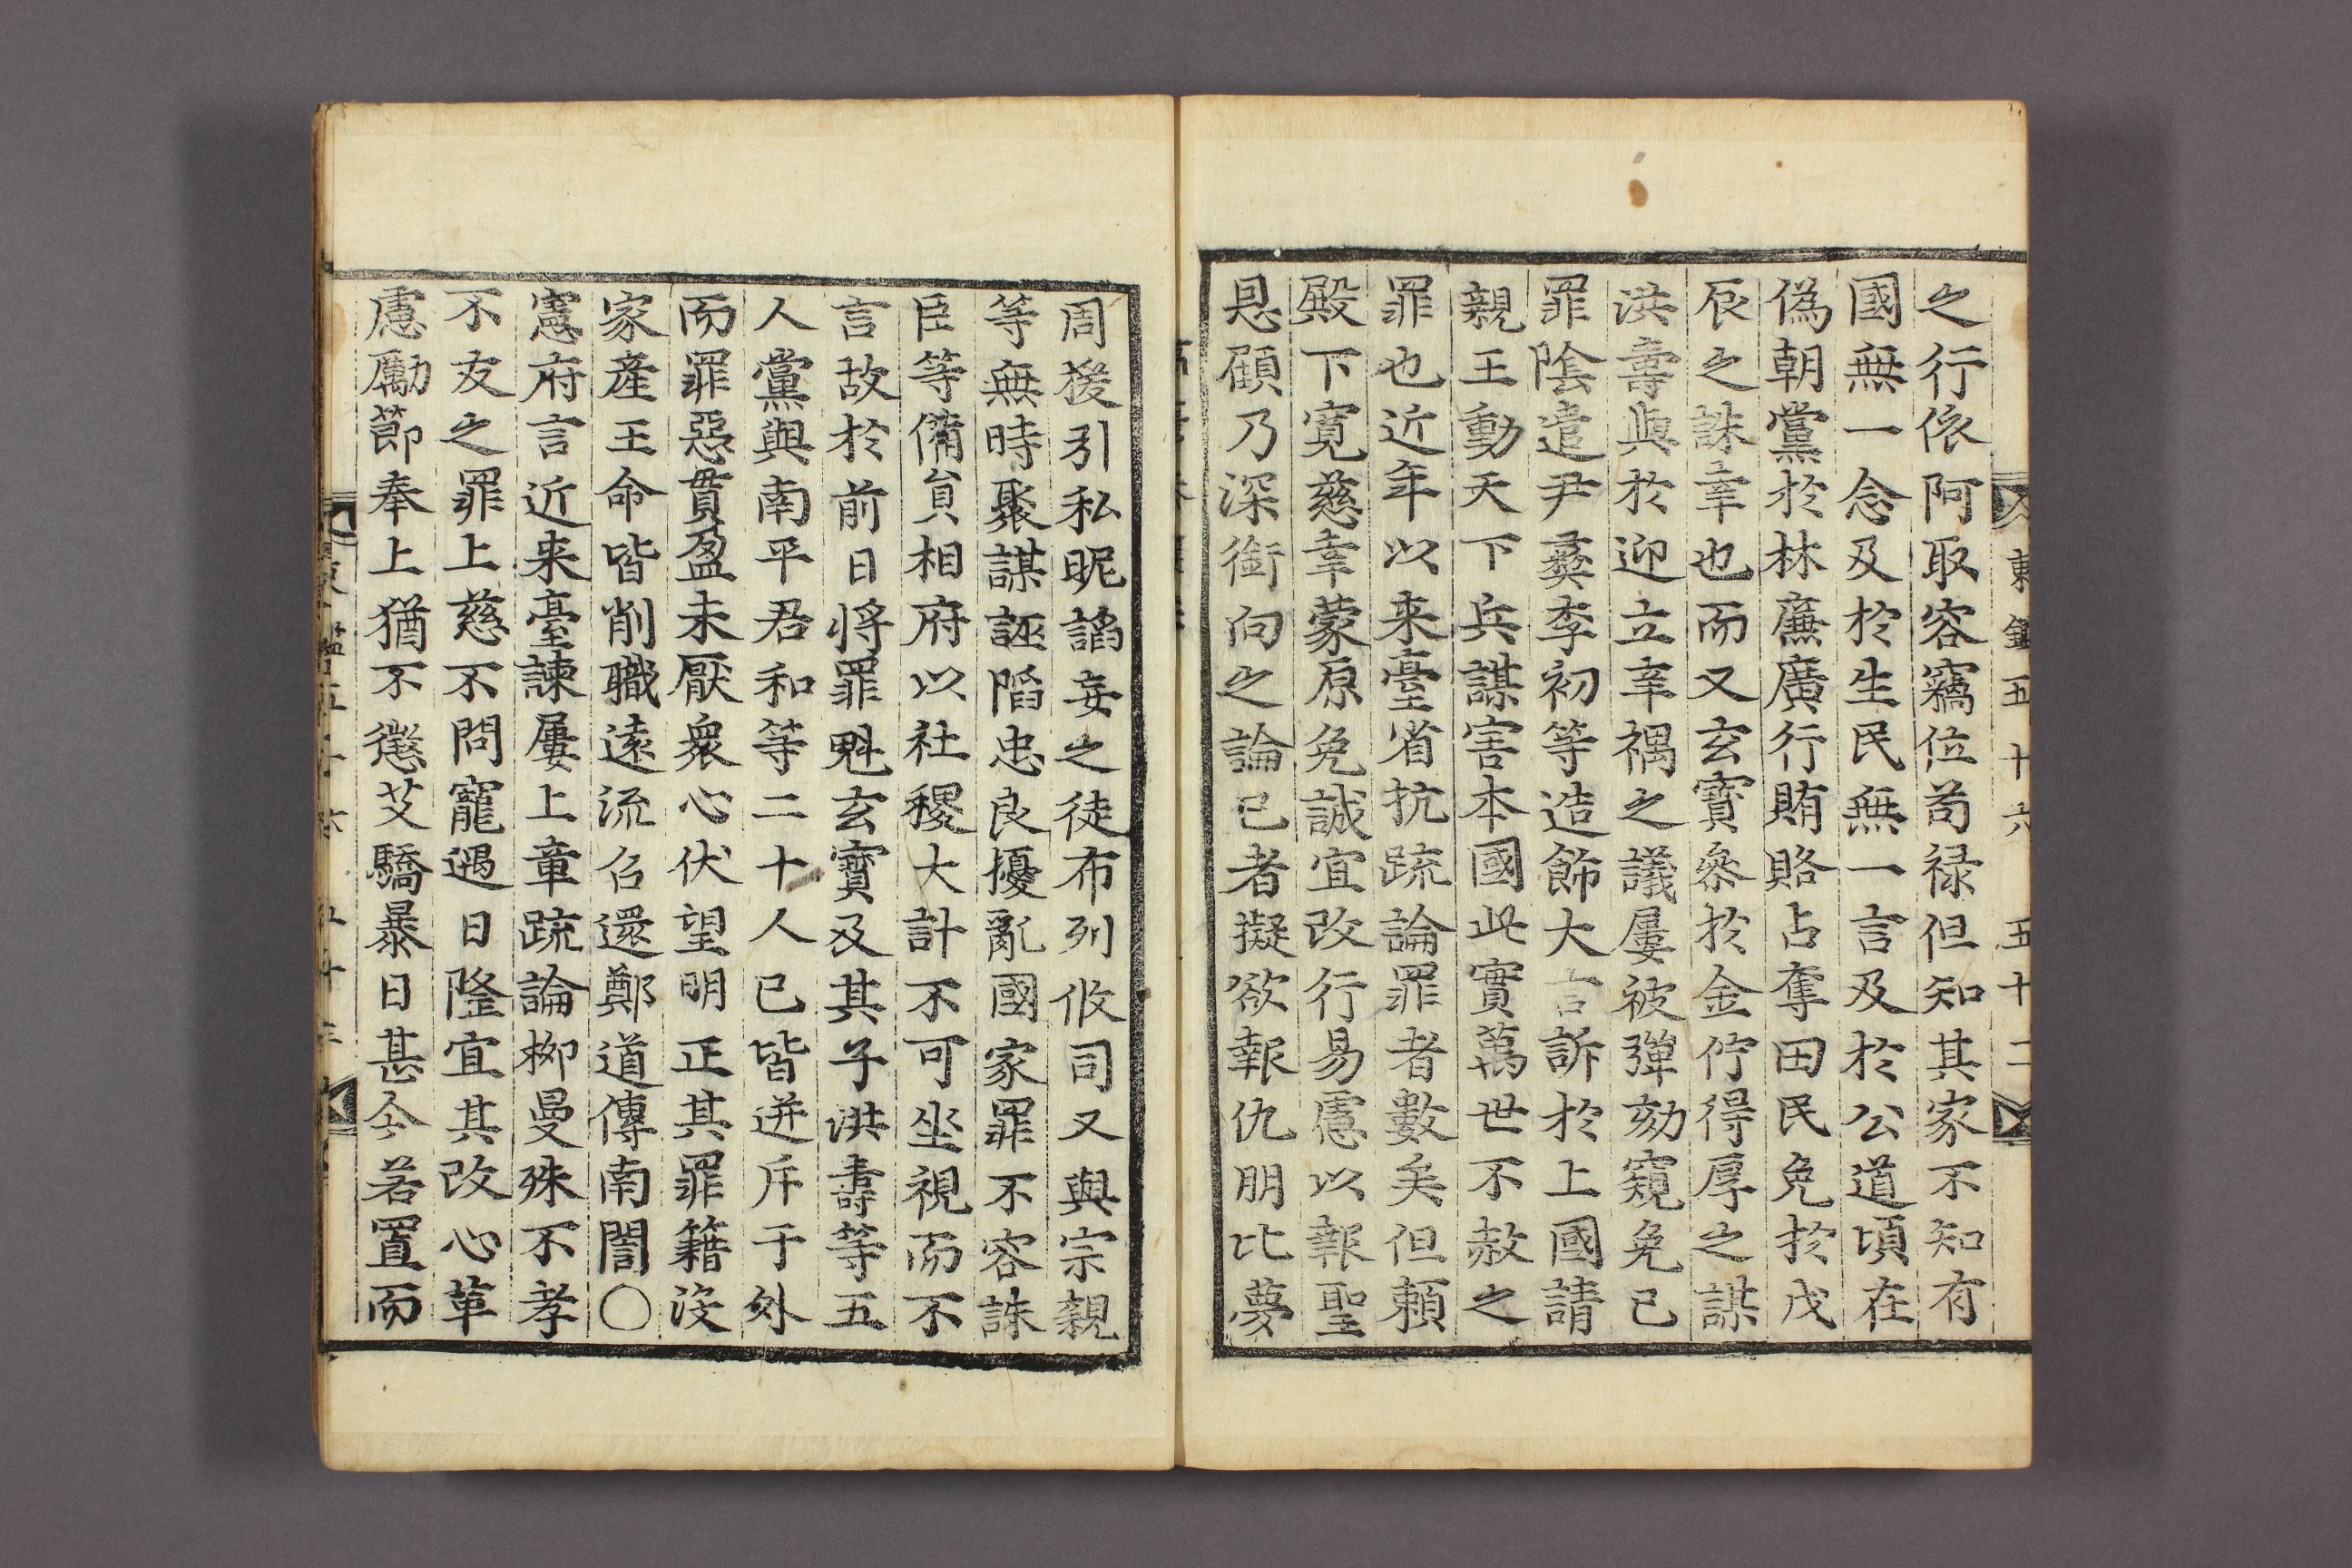 東鑑五十六 五十二
之行依阿取容竊位苟祿但知其家不知有
國無一念及於生民無一言及於公道頃在
僞朝黨於林廉廣行賄賂占奪田民免於戊
辰之誅幸也而又玄寶叅於金佇得厚之謀
洪壽與於迎立辛禑之議屢被彈劾窺免己
罪陰遣尹彛李初等造飾大言訴於上國請
親王動天下兵謀害本國此實萬世不赦之
罪也近年以来臺省抗疏論罪者數矣但賴
殿下寬慈幸蒙原免誠宜改行易慮以報聖
恩顧乃深銜向之論己者擬欲報仇朋比夢
周援引私昵謟妄之徒布列攸司又與宗親
等無時聚謀誣陷忠良擾亂國家罪不容誅
臣等備貟相府以社稷大計不可坐視而不
言故於前日将罪魁玄寶及其子洪壽等五
人黨與南平君和等二十人已皆迸斥于外
而罪惡貫盈未厭衆心伏望明正其罪籍沒
家産王命皆削職遠流召還鄭道傳南誾〇
憲府言近来臺諫屢上章疏論栁曼殊不孝
不友之罪上慈不問寵遇日隆宜其改心革
慮勵節奉上猶不懲艾驕暴日甚今若置而